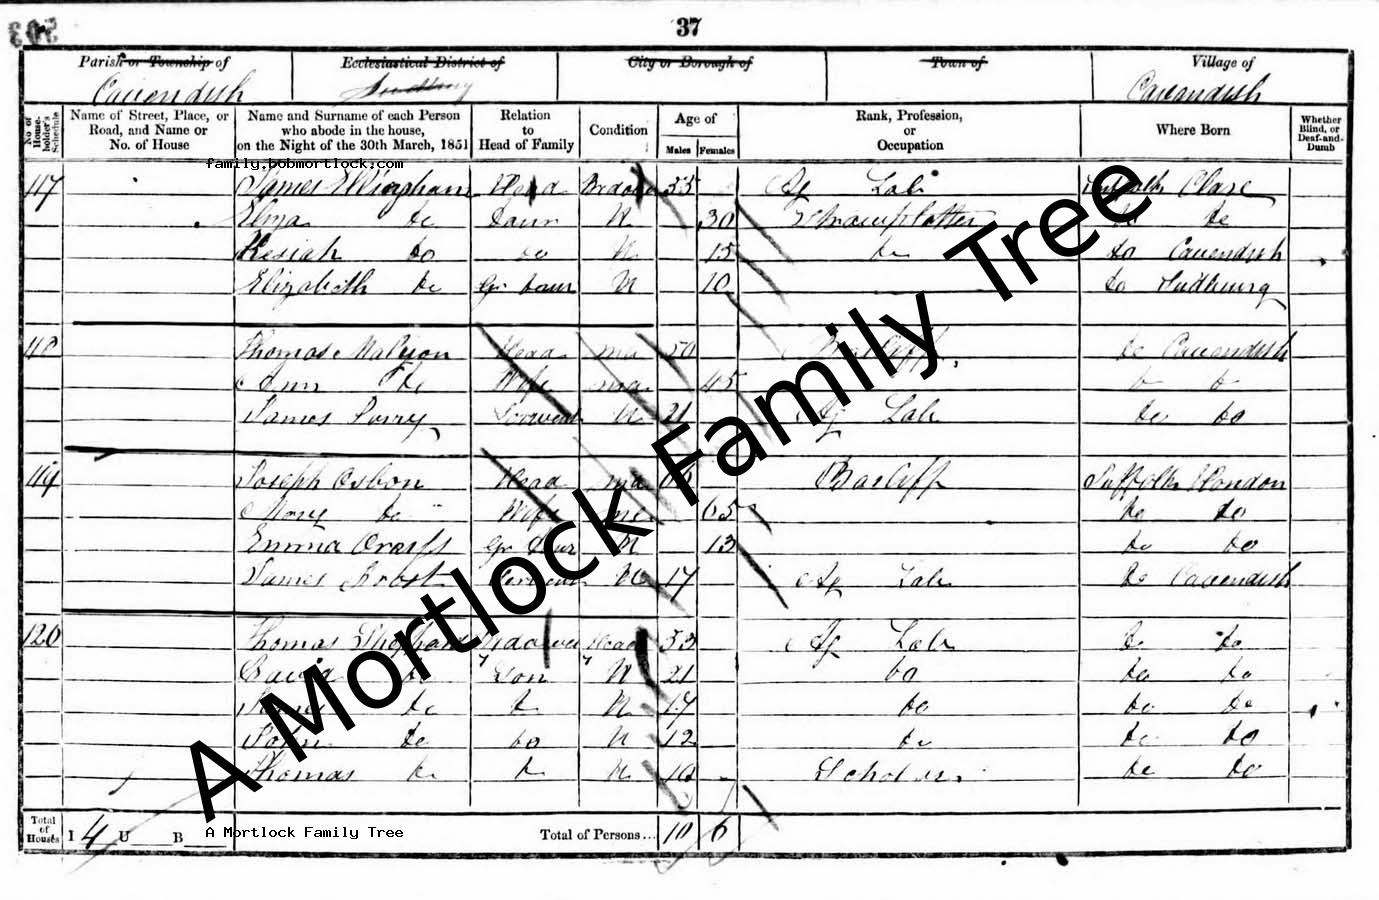 37
Parish or Township of Ecclesiastical District of City or Borough of Town of Village of
Cavendish Cavendish
No of House-holder's Schedule
Name of Street, Place, or Road, and Name or No. of House
Name and Surname of each Person who abode in the house, on the Night of the 30th March, 1851
Relation to Head of Family
Condition
Age of
Males Females
Rank, Profession, or Occupation
Where Born
Whether Blind, or Deaf-and-Dumb
family.bobmortlock.com
117 James Ellingham Head 55 Ag Lab Suffolk Clare
Eliza do Daur U 30 Strawplatter do do
Kesiah do do U 15 do do Cavendish
Elizabeth do Gr Daur U 10 do Sudbury
118 Thomas Malyon Head Ma 50 Bailiff do Cavendish
Ann do Wife Ma 45 do do
James U 21 Ag Lab do do
119 Joseph Osbon Head Ma Bailiff Suffolk
Mary do Wife 65 do do
Emma Gr Daur U 13 do do
James U 17 Ag Lab do Cavendish
120 Thomas Head 53 Ag Lab do do
David do Son U 21 do do do
do do U 17 do do do
John do do U 12 do do do
Thomas do do U 10 Scholar do do
Total of Houses I 4 U B Total of Persons... 10 6
A Mortlock Family Tree
A Mortlock Family Tree